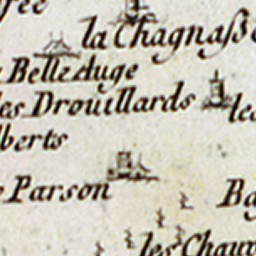 la Chagnaß
Belleduge
les Drouillards
les
berts
Parson
Ba
les Chauv